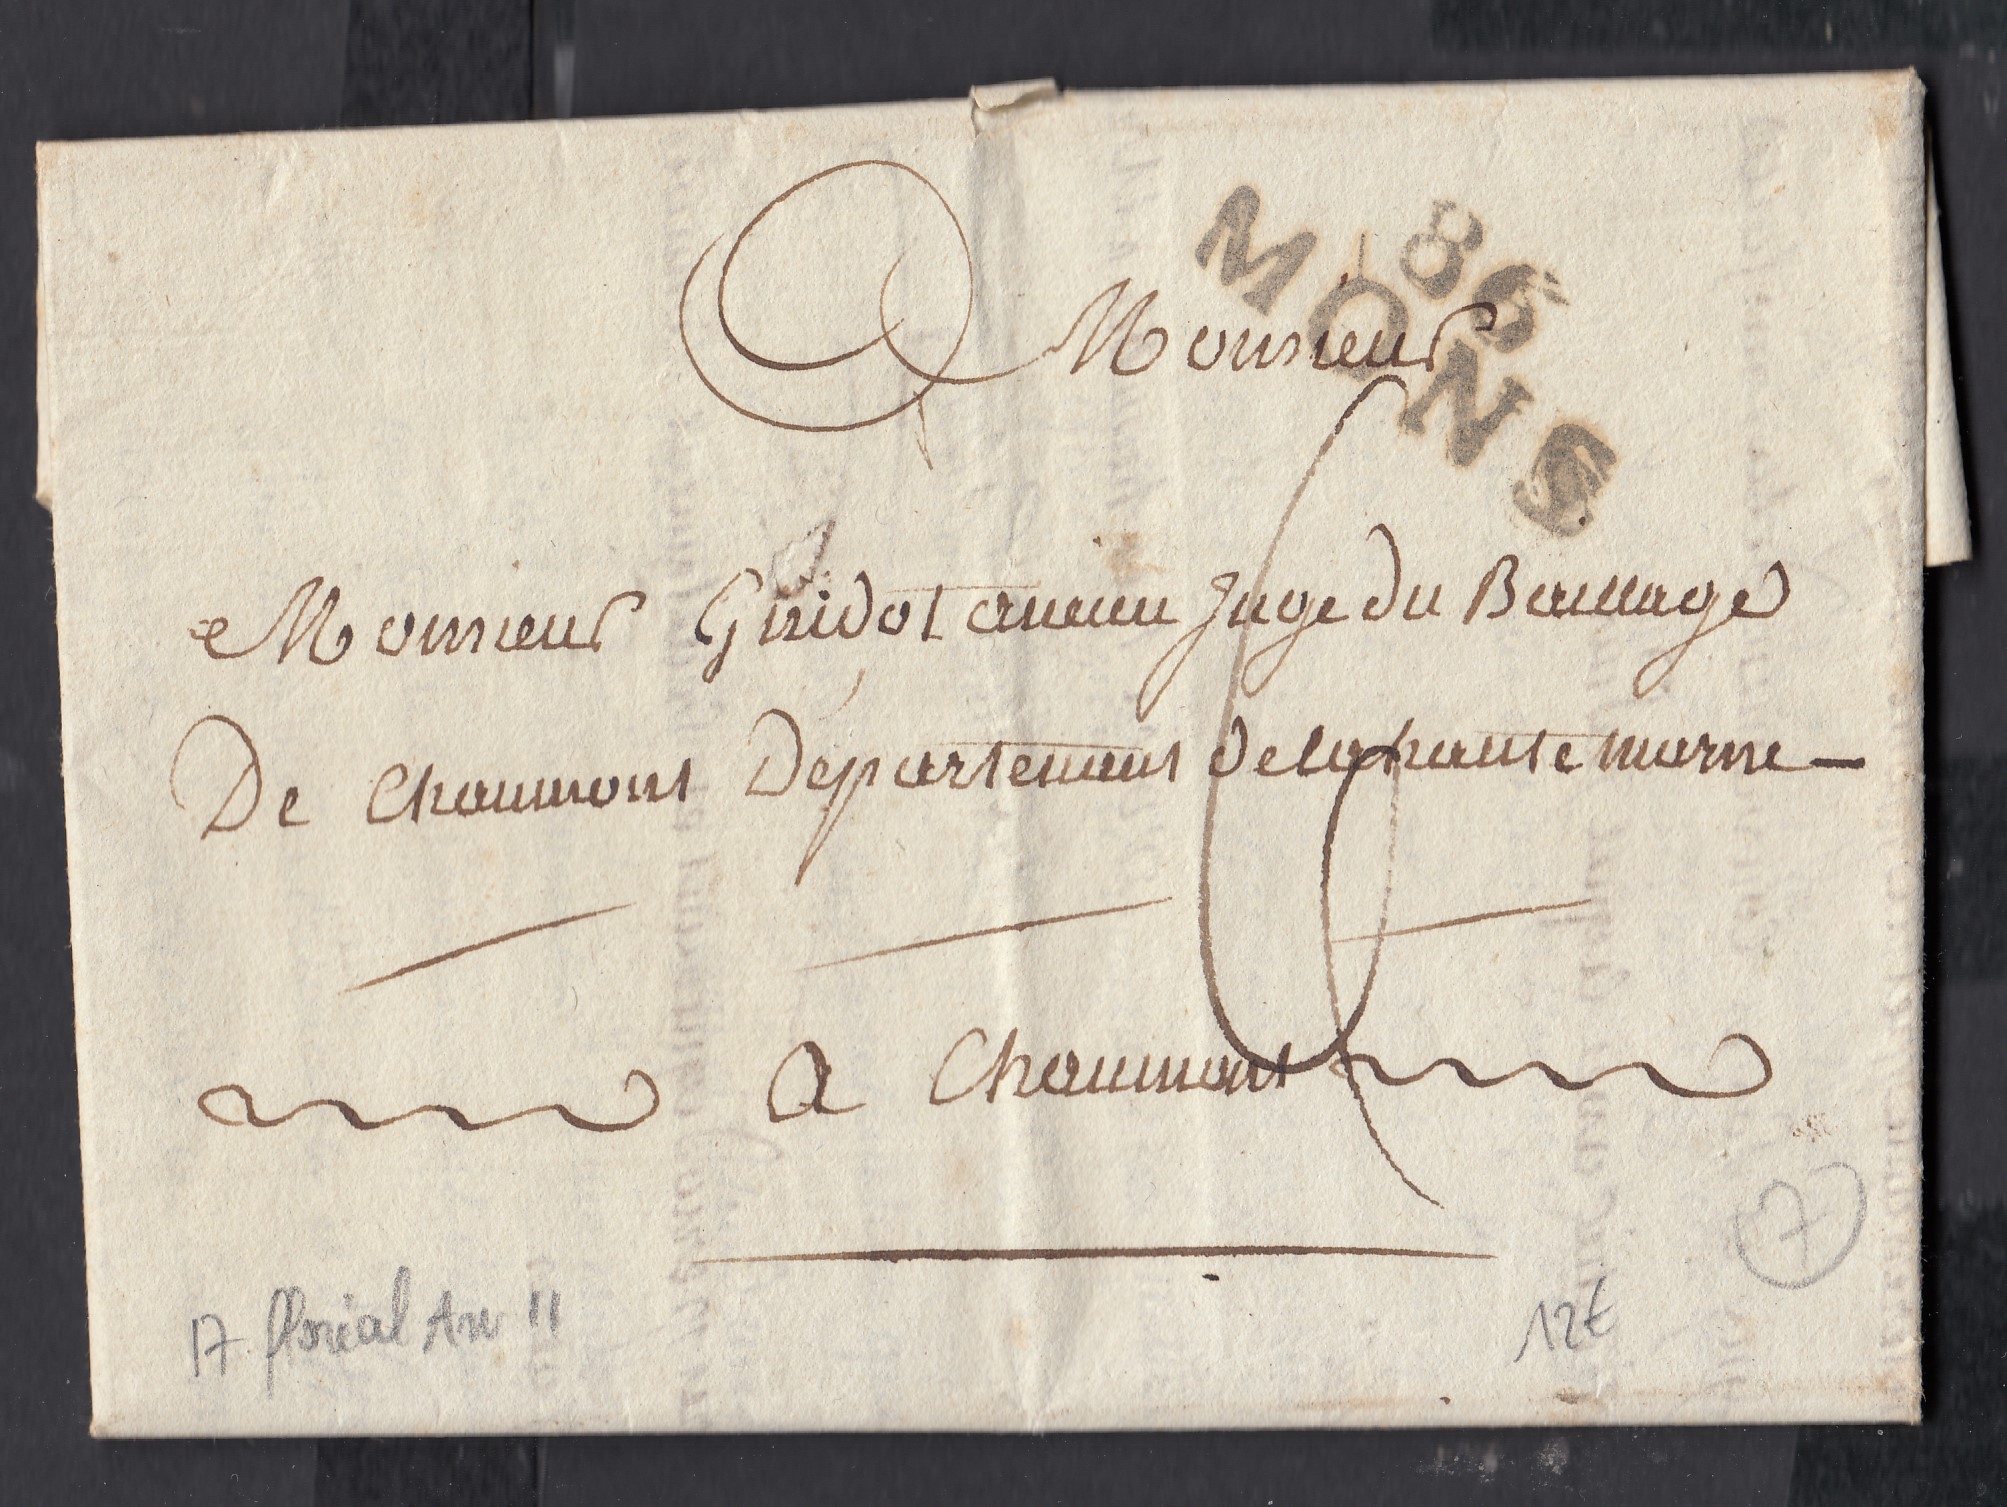 86
MONS
Monsieur
Monsieur Guidot ancien Juge du Baillage
De Chaumont Département de la haute marne
a Chaumont
6
7
17 floréal An 11
12€